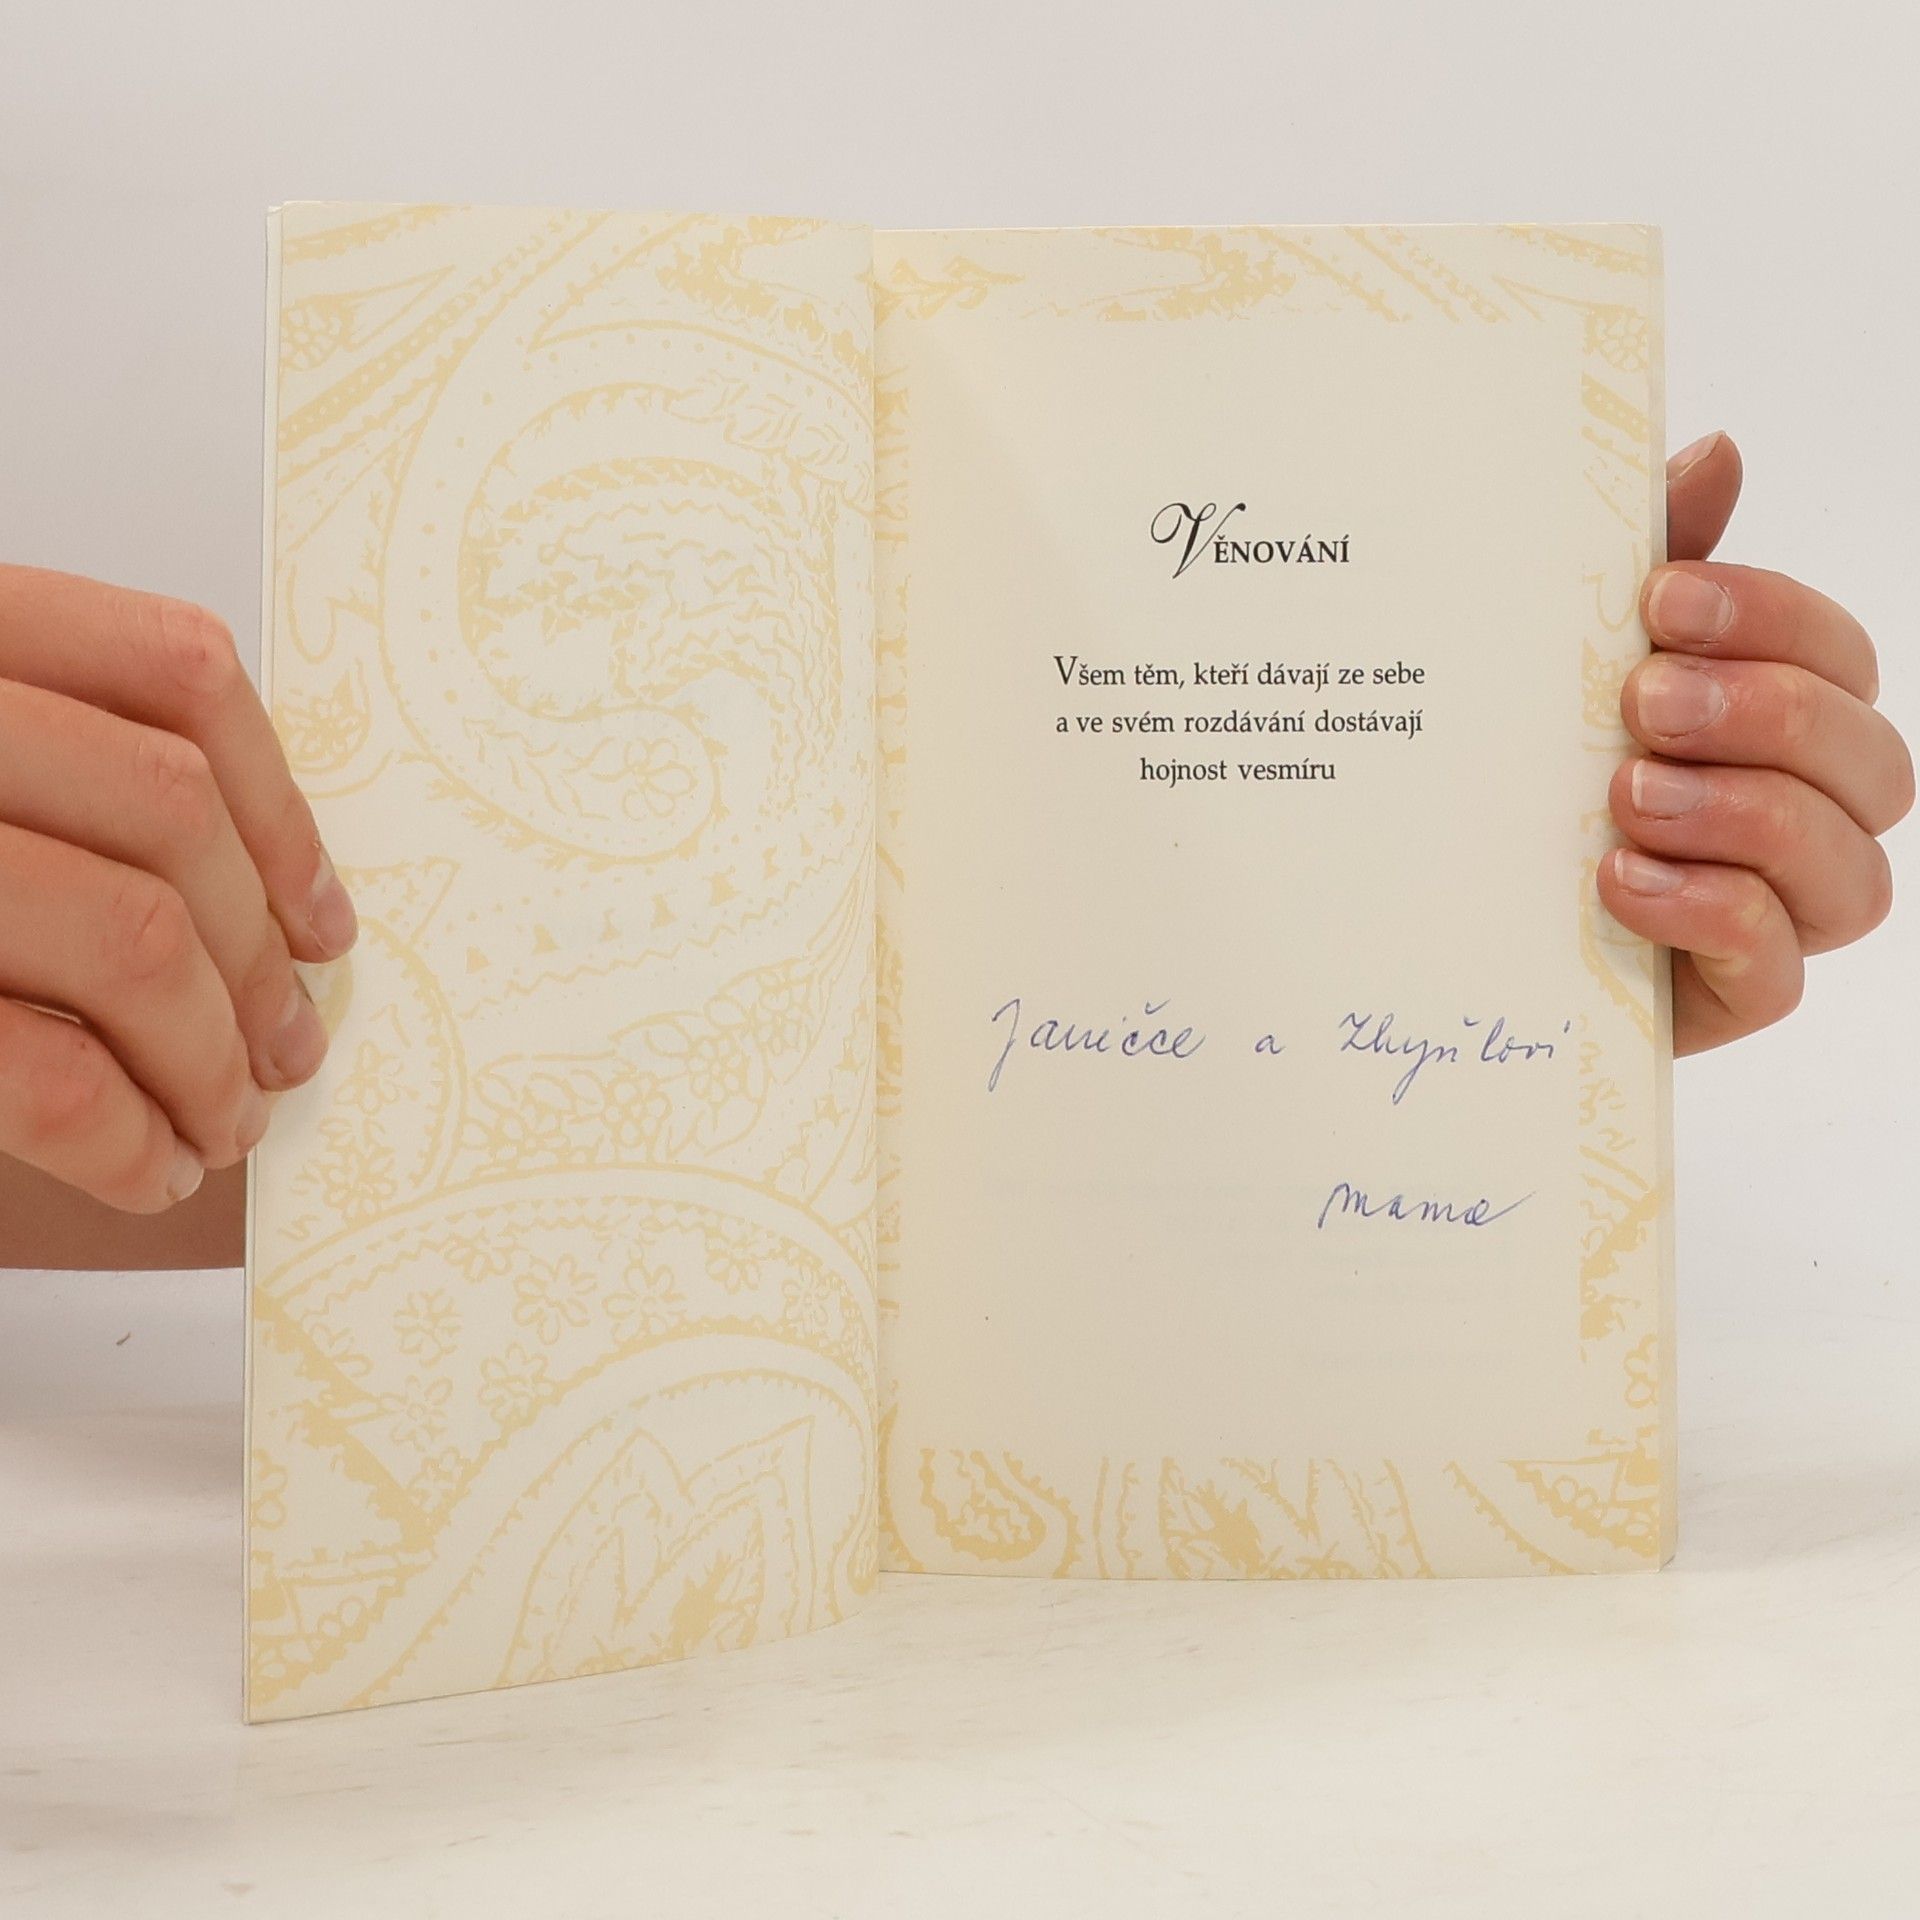 VĚNOVÁNÍ
Všem těm, kteří dávají ze sebe
a ve svém rozdávání dostávají
hojnost vesmíru
Janičce a Zbyňkovi
mama